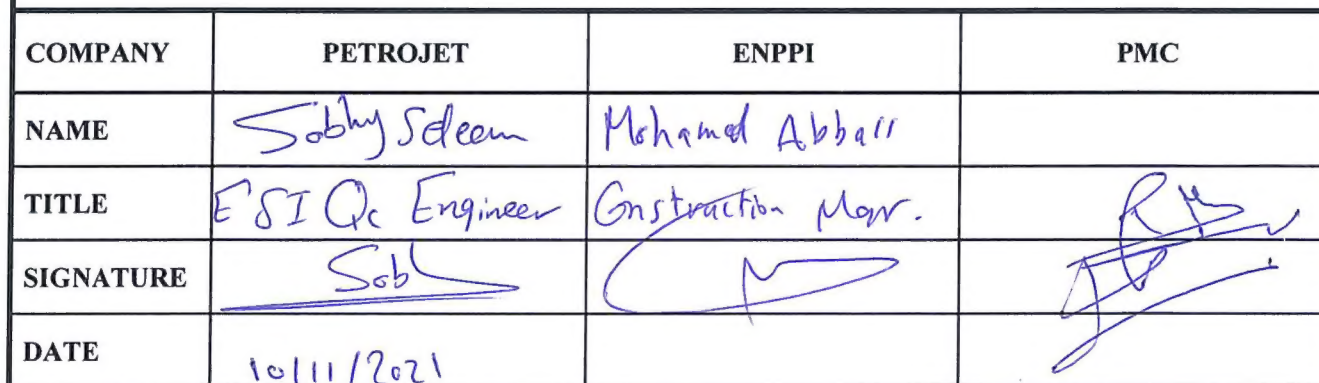 COMPANY PETROJET ENPPI PMC
NAME Sobhy Seleem Mohamed Abball
TITLE E&I Qc Engineer Construction Mgr.
SIGNATURE Sob
DATE 10/11/2021